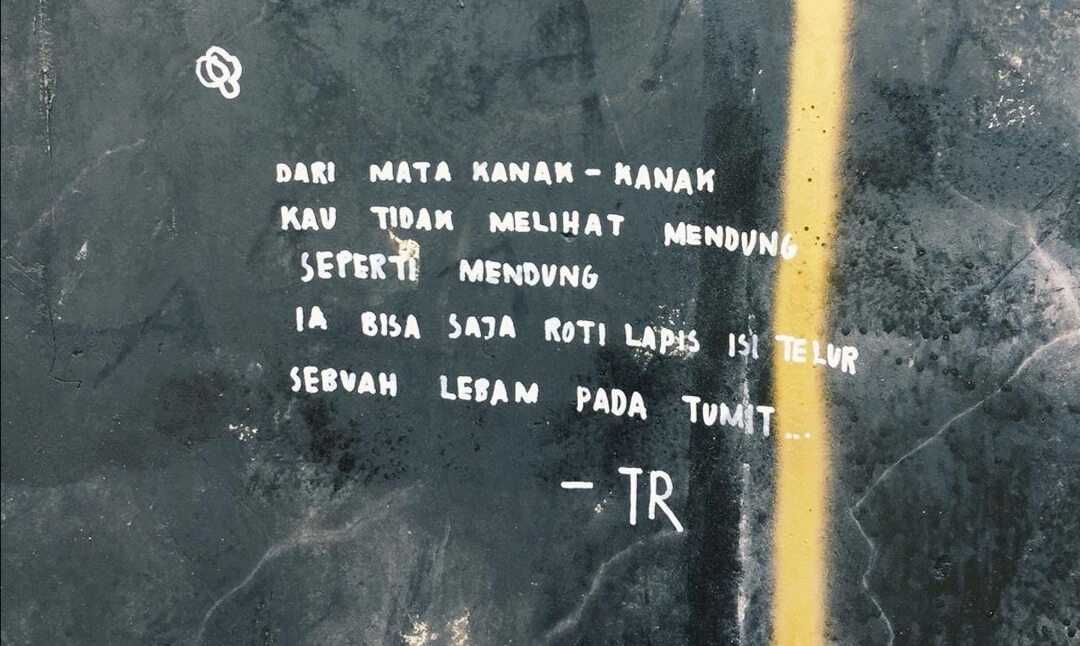 DARI MATA KANAK-KANAK
KAU TIDAK MELIHAT MENDUNG
SEPERTI MENDUNG
IA BISA SAJA ROTI LAPIS ISI TELUR
SEBUAH LEBAM PADA TUMIT...
- TR